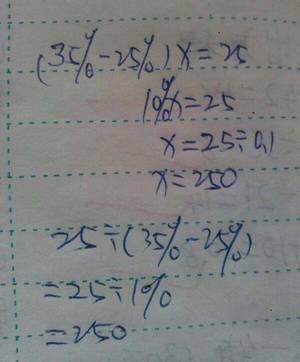 (35%-25%)x=25
10%x=25
x=25÷0.1
x=250
25÷(35%-25%)
=25÷10%
=250